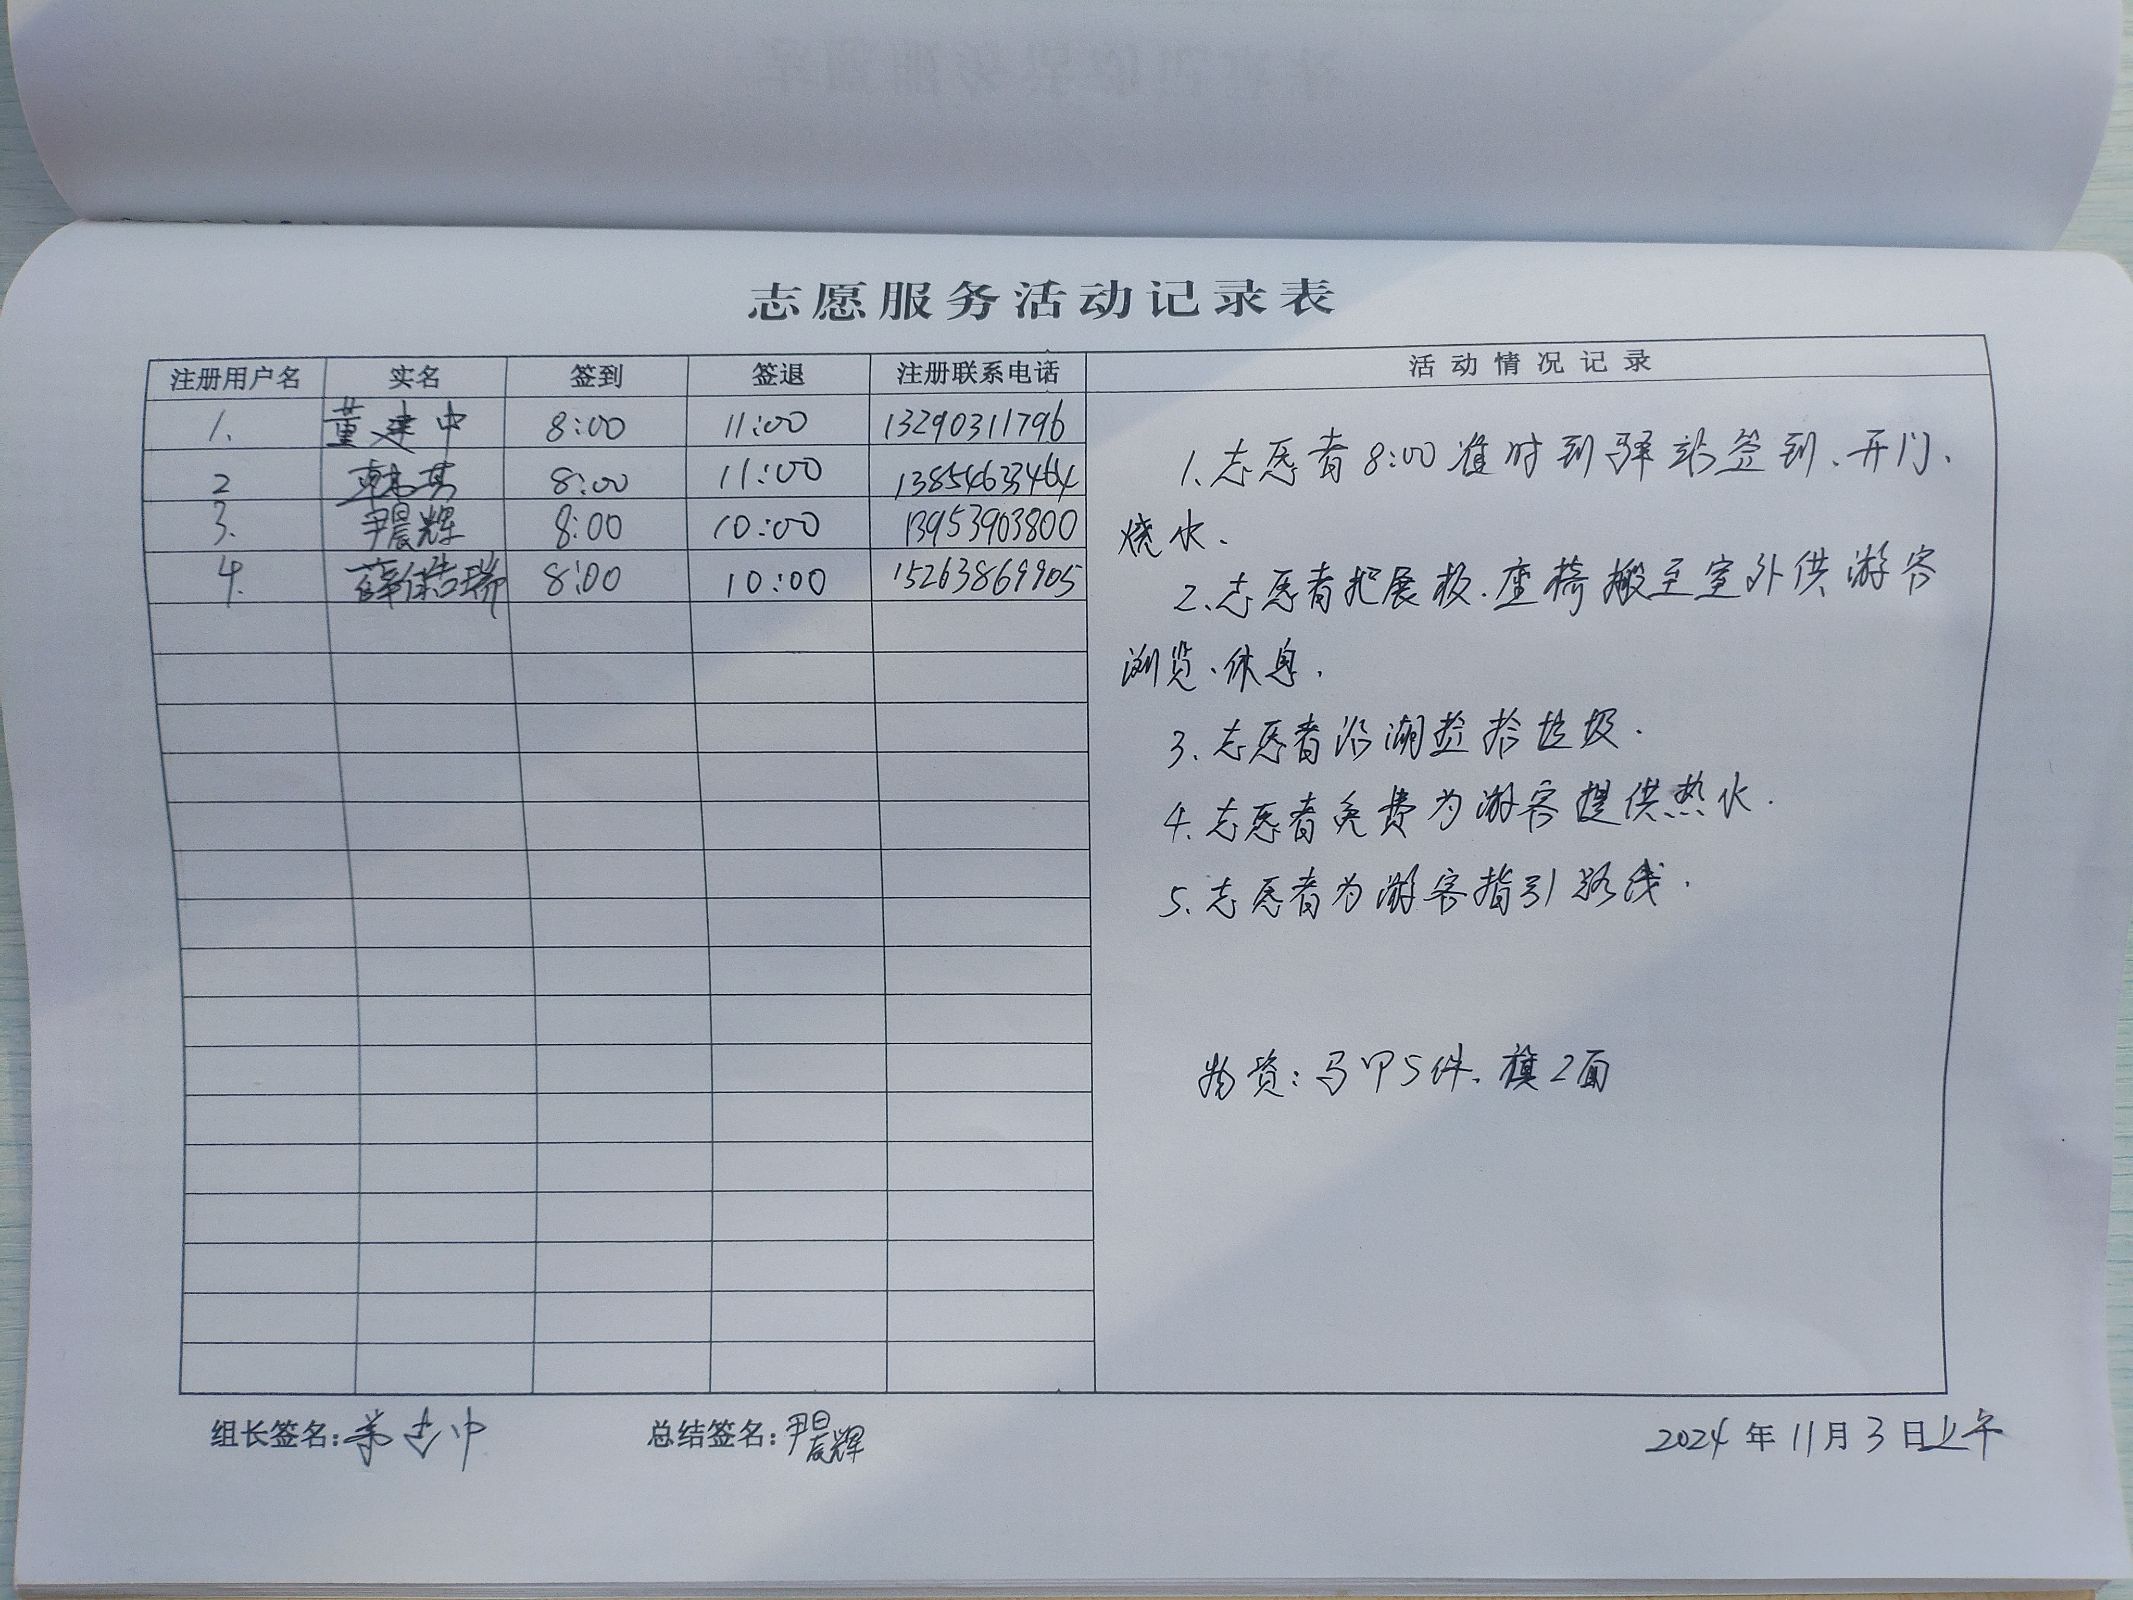 志愿服务活动记录表
注册用户名 实名 签到 签退 注册联系电话 活动情况记录
1. 董建中 8:00 11:00 13290311796
2 8:00 11:00 13854633464
3. 尹晨辉 8:00 10:00 13953903800
4. 薛浩瑞 8:00 10:00 15263869905
1.志愿者8:00准时到驿站签到、开门、
烧水.
2.志愿者把展板.座椅搬至室外供游客
浏览、休息.
3.志愿者沿湖捡拾垃圾.
4.志愿者免费为游客提供热水.
5.志愿者为游客指引路线.
物资:马甲5件、旗2面
组长签名: 总结签名:尹晨辉 2024年11月3日上午